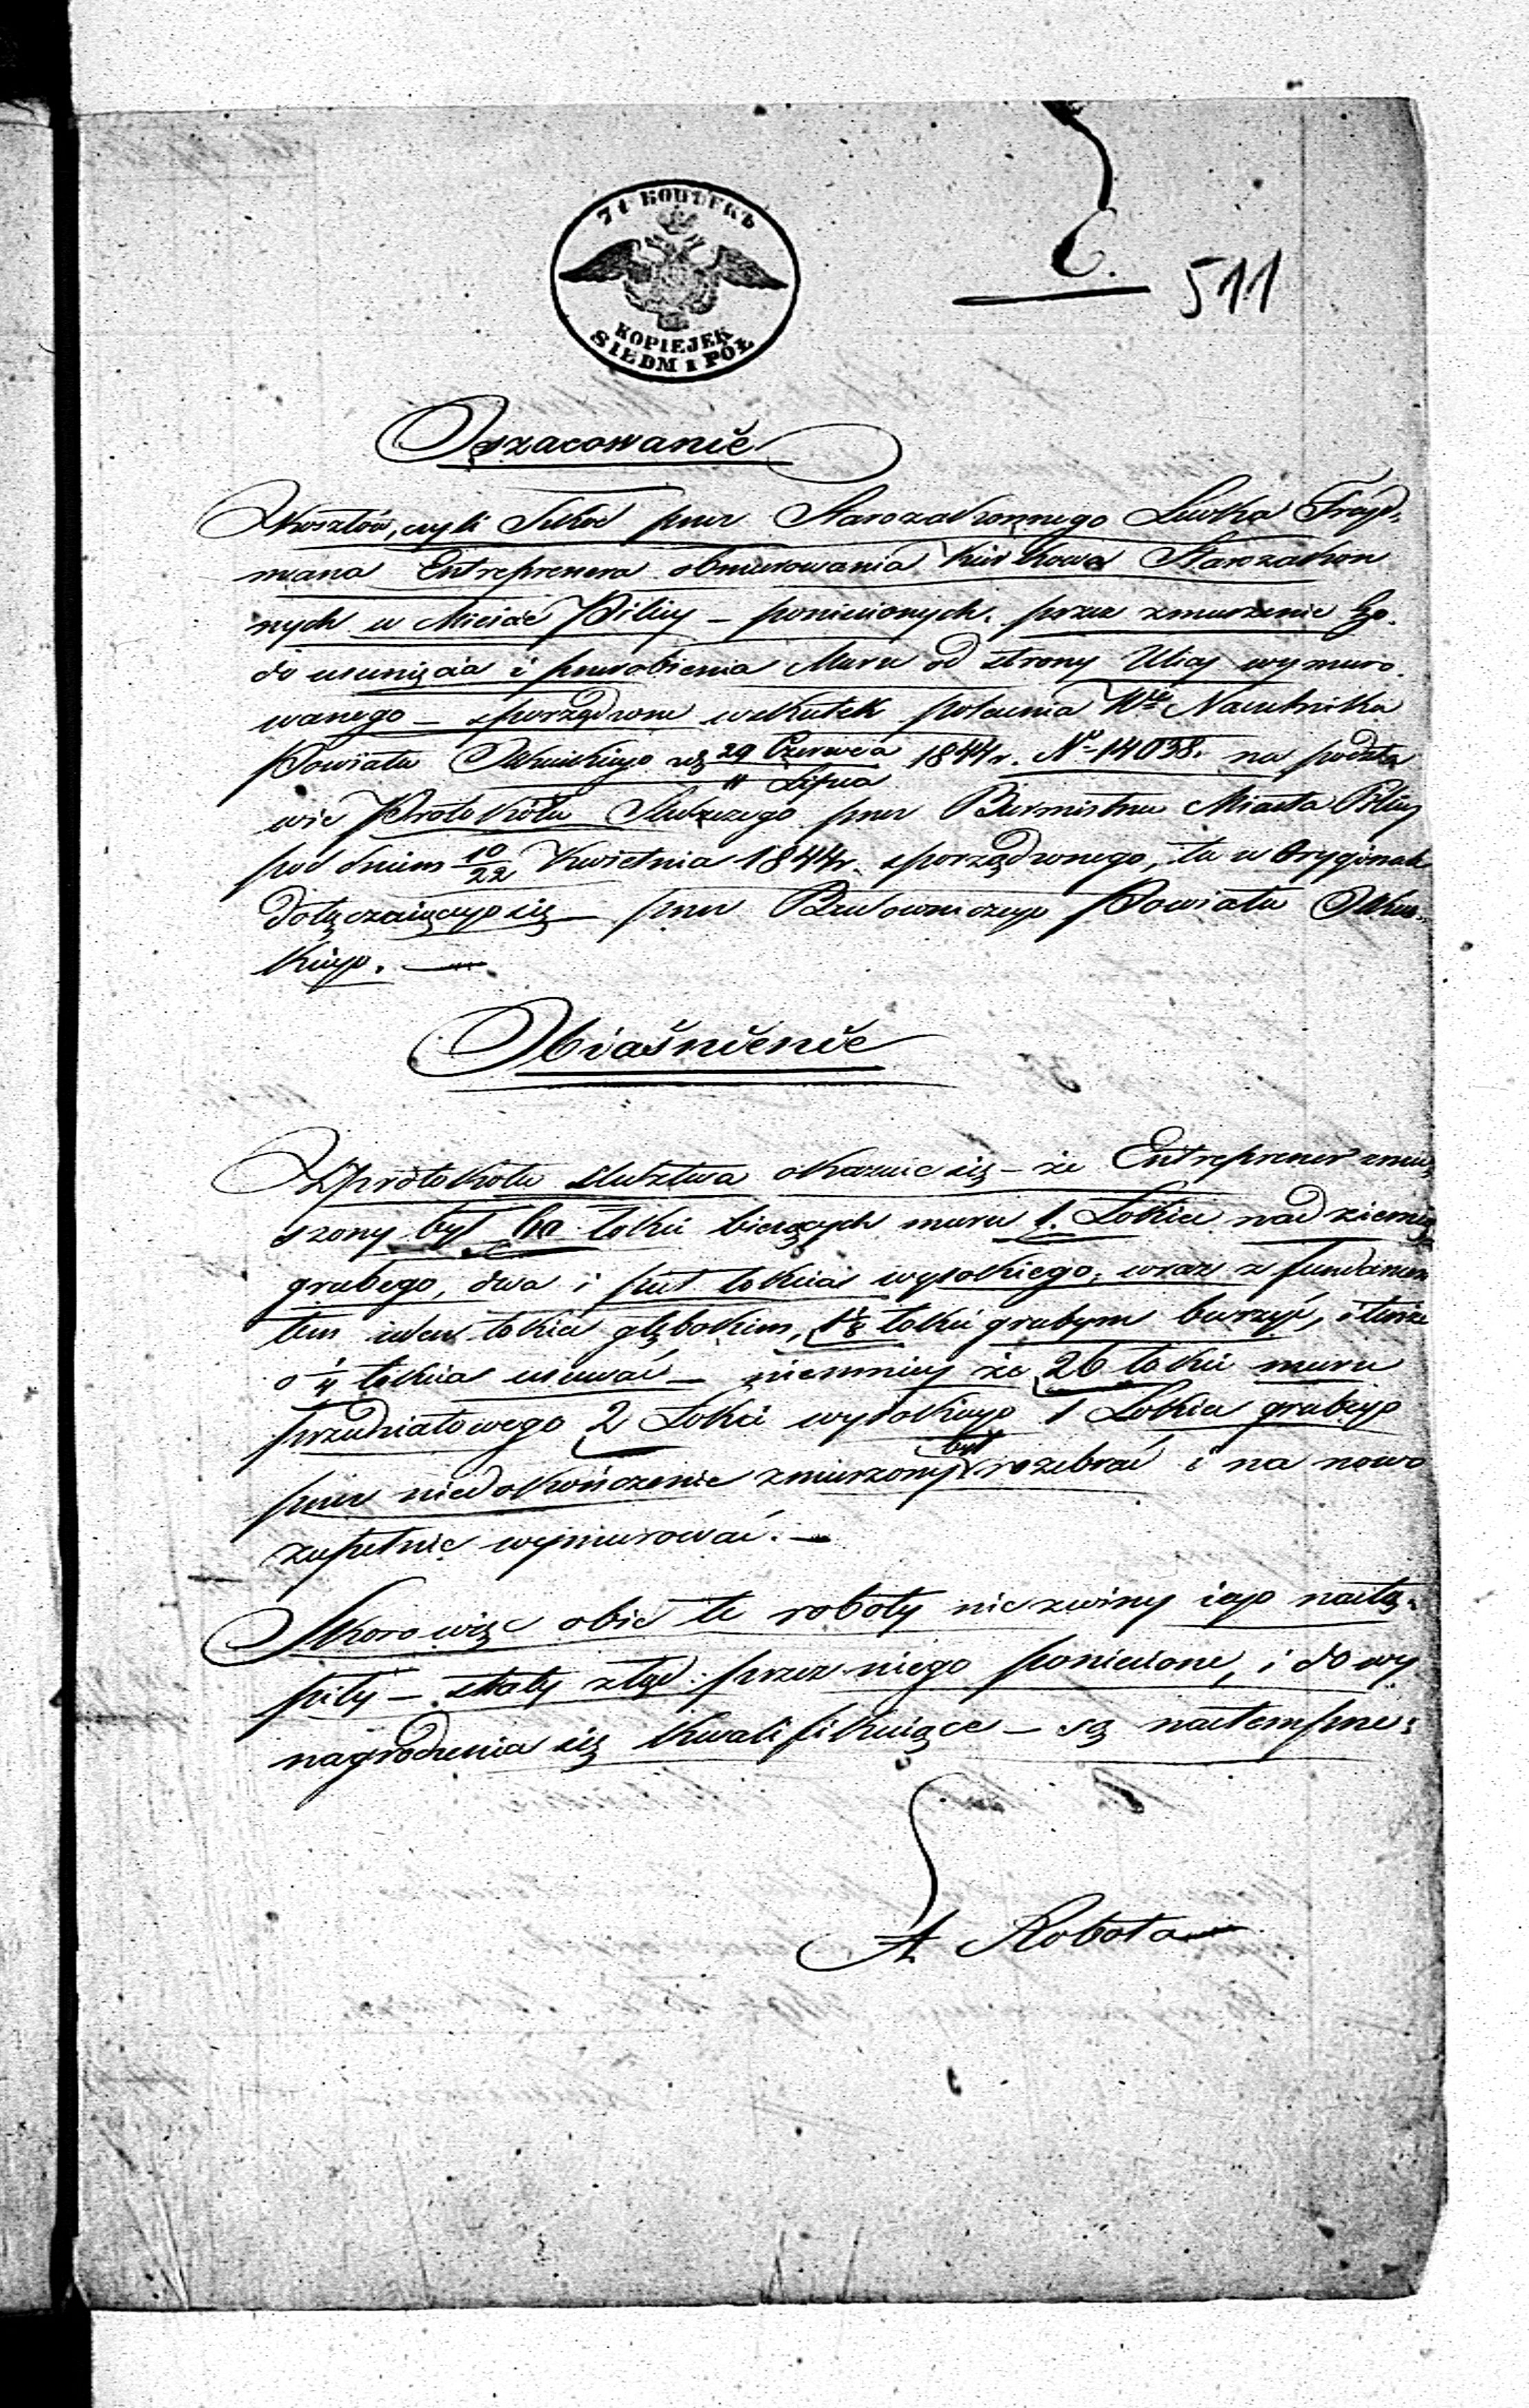 7½ КОПѢЕКЪ
KOPIEJEK
SIEDM I PÓŁ
C.
511
Oszacowanie
Kosztów, czyli Szkód przez Starozakonnego Lewka Frayd=
mana Entreprenera obmurowania Kirkowa Starozakon
nych w Mieście Pilicy – poniesionych, przez zmuszenie Go
do usunięcia i przerobienia Muru od strony Ulicy wymuro
wanego – sporządzone wskutek polecenia Wgo Naczelnika
Powiatu Olkuskiego z d 29 Czerwca 1844 r. No 14038. na podsta
11 Lipca
wie Protokółu Śledczego przez Burmistrza Miasta Pilicy
pod dniem 10/22 Kwietnia 1844 r. sporządzonego, tu w Oryginale
dołączaiącego się – przez Budowniczego Powiatu Olkus=
kiego. —
Obiaśnienie
Z protokółu śledztwa okazuie się – że Entreprener zmu
szony był łokci bieżących muru 1. Łokieć nad ziemią
grubego, dwa i puł łokcia wysokiego, wraz z fundamen
tem ieden łokieć głębokim, 1⅛ łokci grubym burzyć, i tenże
o ¼ łokcia usuwać – niemniey że 26 łokci muru
przedziałowego 2 Łokci wysokiego 1 Łokieć grubego
przez niedokończenie zmuszony był rozebrać i na nowo
zupełnie wymurować. –
Skoro więc obie te roboty nie z winy iego nastą=
piły – straty ztąd przez niego poniesione, i do wy
nagrodzenia się kwalifikuiące – są następne:
A. Robota